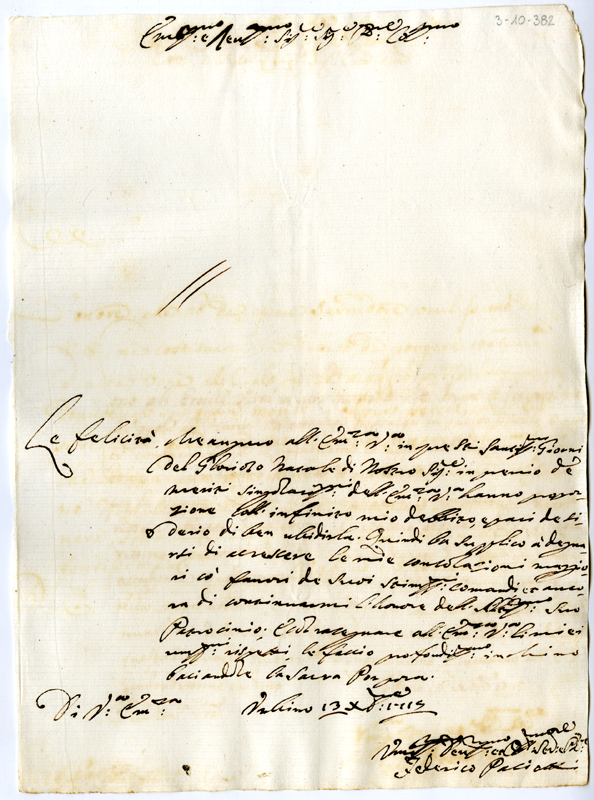 3-10-382
Em.mo e Rev.mo Sig.r Sig.r P.ron Col.mo
Le felicità, che auguro all' Em.za V.ra in questi Santiss.mi Giorni
del Glorioso Natale di Nostro Sig.re in premio de
meriti singolariss.mi dell' Em.za V.ra hanno propor
zione coll' infinito mio debito, e pari desi
derio di ben ubidirla. Quindi la supplico à degnar
si di accrescere le mie consolazioni maggio
ri có favori de Suoi stimatiss.mi comandi, et anco
ra di continuarmi l'honore dell' Suo
Patrocinio; E all' Em.za V.ra li miei
rispetti, le faccio profondiss.mo inchino
baciandole la Sacra Porpora.
Di V.ra Em.za Urbino 13 X.bre
Federico Paciotti